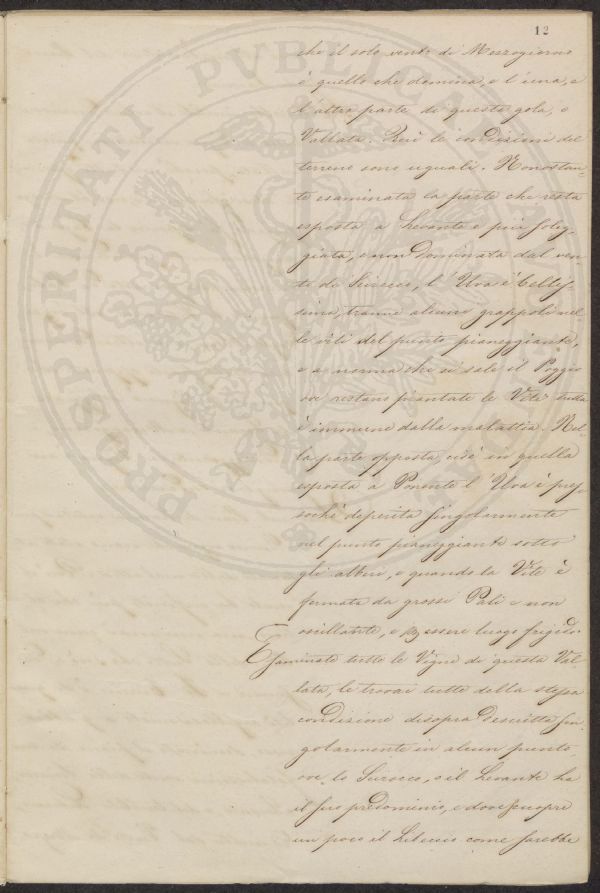 12
che il solo vento di Mezzogiorno
è quello che domina, e l'una, e
l'altra parte di questa gola, o
Vallata. Però le condizioni del
terreno sono uguali. Nonostan-
te esaminata la parte che resta
esposta a Levante e più soleg-
giata, e non dominata dal ven-
to di Scirocco, l'Uva è bellis-
sima, tranne alcuni grappoli nel-
le viti del punto pianeggiante,
e a misura che si sale il Poggio
ove restano piantate le Viti tutta
è immune dalla malattia. Nel-
la parte opposta, cioè in quella
esposta a Ponente l'Uva è pres-
sochè deperita singolarmente
nel punto pianeggiante sotto
gli alberi, e quando la Vite è
fermata da grossi Pali e non
oscillante, e essere luogo frigido.
Esaminate tutte le Vigne di questa Val-
lata, le trovai tutte della stessa
condizione disopra descritta sin-
golarmente in alcun punto
ove lo Scirocco, o il Levante ha
il suo predominio, e dove scuopre
un poco il Libeccio come sarebbe
PROSPERITATI PVBLICAE